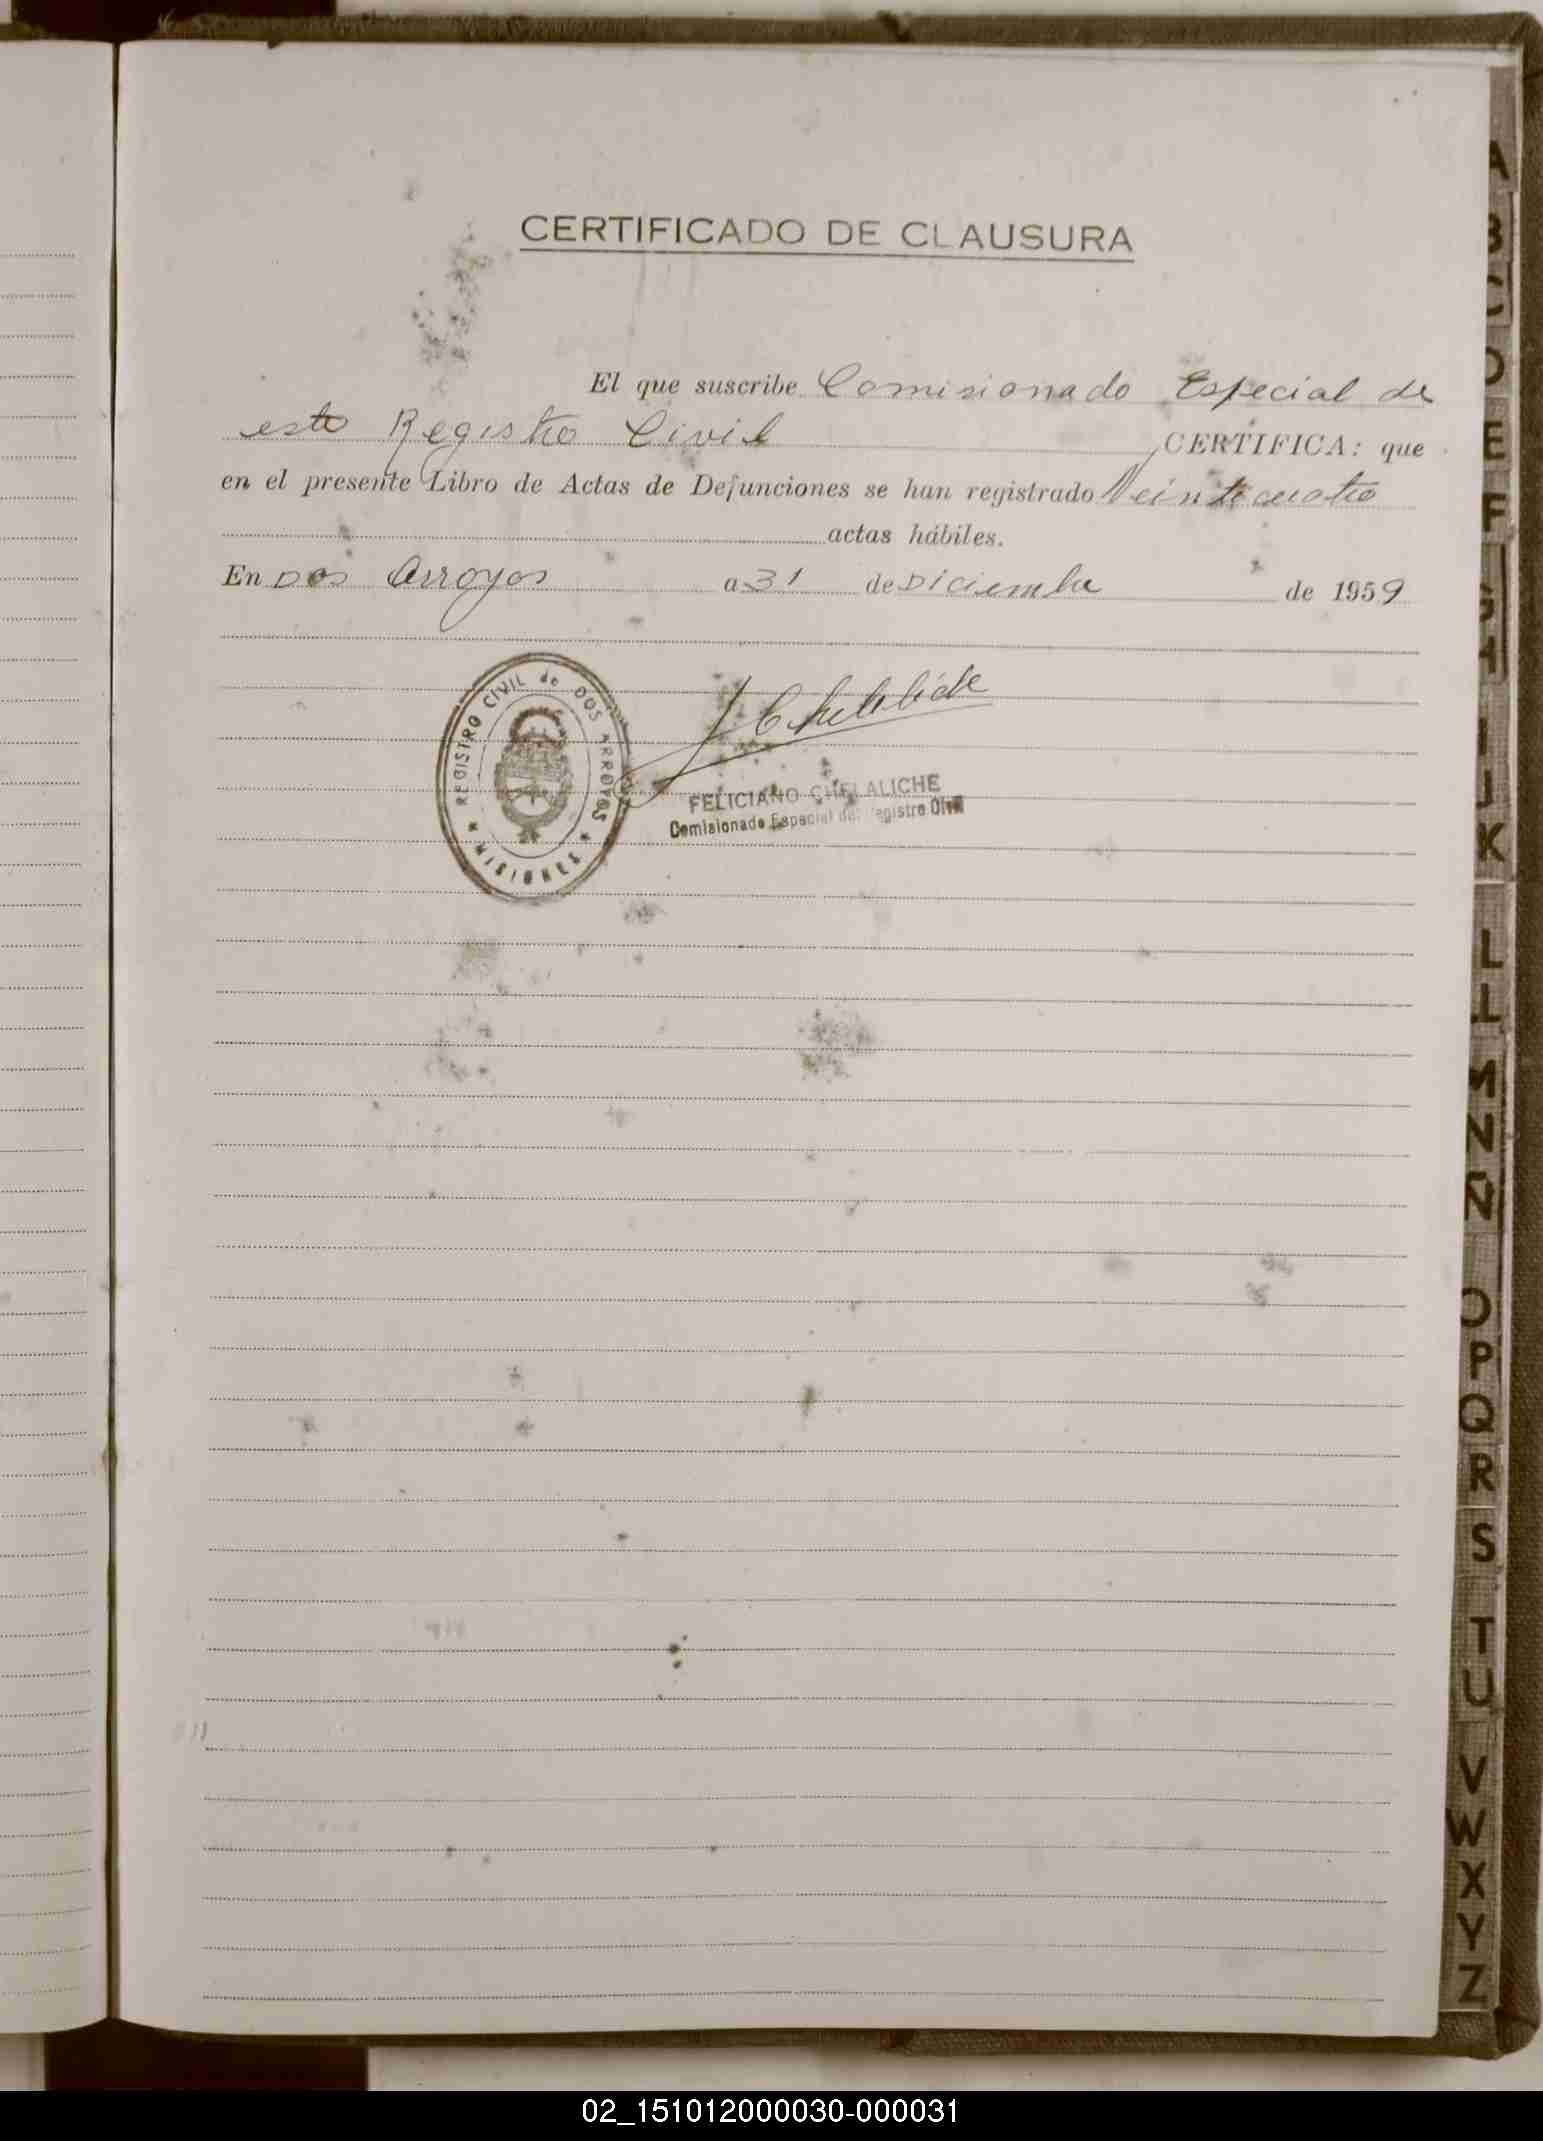 CERTIFICADO DE CLAUSURA
El que suscribe Comisionado Especial de
este Registro Civil CERTIFICA: que
en el presente Libro de Actas de Defunciones se han registrado Veinticuatro
actas hábiles.
En Dos Arroyos a 31 de Diciembre de 1959
REGISTRO CIVIL de DOS ARROYOS
* MISIONES *
Chelaliche
FELICIANO CHELALICHE
Comisionado Especial del Registro Civil
A
B
C
D
E
F
G
H
I
J
K
L
LL
M
N
Ñ
O
P
Q
R
S
T
U
V
W
X
Y
Z
02_151012000030-000031